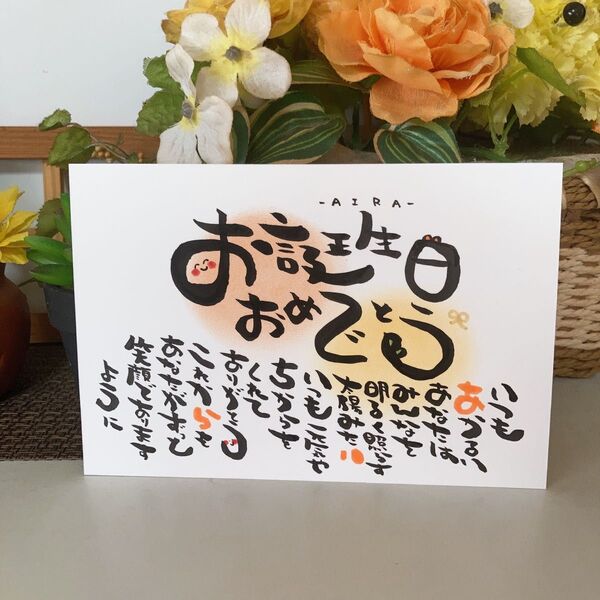 -AIRA-
お誕生日
おめでとう
いつも
あかるい
あなたは、
みんなを
明るく照らす
太陽みたい
いつも元気や
ちからを
くれて
ありがとう
これからも
あなたがずっと
笑顔であります
ように